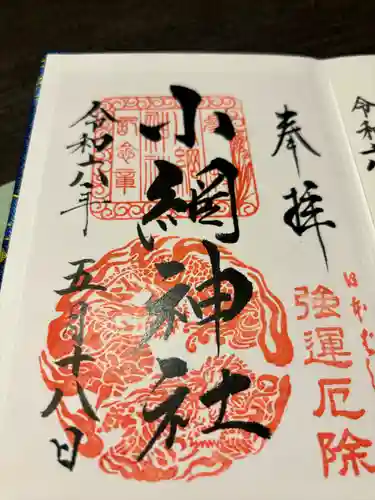 奉拝
強運厄除
小網神社
令和六年
五月十八日
令和六